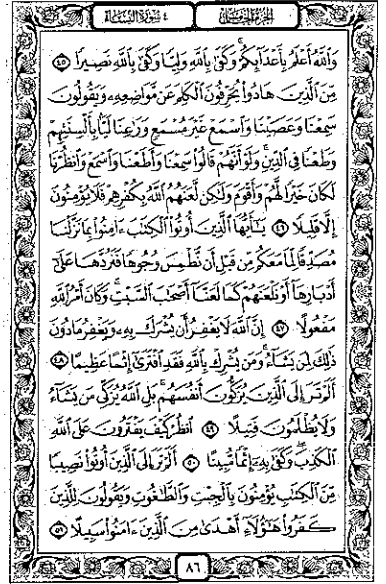 الجزء الخامس
٤ سورة النساء
وَاللَّهُ أَعْلَمُ بِأَعْدَآئِكُمْ وَكَفَىٰ بِاللَّهِ وَلِيًّا وَكَفَىٰ بِاللَّهِ نَصِيرًا ٤٥
مِّنَ الَّذِينَ هَادُوا يُحَرِّفُونَ الْكَلِمَ عَن مَّوَاضِعِهِ وَيَقُولُونَ
سَمِعْنَا وَعَصَيْنَا وَاسْمَعْ غَيْرَ مُسْمَعٍ وَرَاعِنَا لَيًّا بِأَلْسِنَتِهِمْ
وَطَعْنًا فِي الدِّينِ وَلَوْ أَنَّهُمْ قَالُوا سَمِعْنَا وَأَطَعْنَا وَاسْمَعْ وَانظُرْنَا
لَكَانَ خَيْرًا لَّهُمْ وَأَقْوَمَ وَلَٰكِن لَّعَنَهُمُ اللَّهُ بِكُفْرِهِمْ فَلَا يُؤْمِنُونَ
إِلَّا قَلِيلًا ٤٦ يَٰٓأَيُّهَا الَّذِينَ أُوتُوا الْكِتَٰبَ ءَامِنُوا بِمَا نَزَّلْنَا
مُصَدِّقًا لِّمَا مَعَكُم مِّن قَبْلِ أَن نَّطْمِسَ وُجُوهًا فَنَرُدَّهَا عَلَىٰٓ
أَدْبَارِهَآ أَوْ نَلْعَنَهُمْ كَمَا لَعَنَّآ أَصْحَٰبَ السَّبْتِ وَكَانَ أَمْرُ اللَّهِ
مَفْعُولًا ٤٧ إِنَّ اللَّهَ لَا يَغْفِرُ أَن يُشْرَكَ بِهِ وَيَغْفِرُ مَا دُونَ
ذَٰلِكَ لِمَن يَشَآءُ وَمَن يُشْرِكْ بِاللَّهِ فَقَدِ افْتَرَىٰٓ إِثْمًا عَظِيمًا ٤٨
أَلَمْ تَرَ إِلَى الَّذِينَ يُزَكُّونَ أَنفُسَهُم بَلِ اللَّهُ يُزَكِّي مَن يَشَآءُ
وَلَا يُظْلَمُونَ فَتِيلًا ٤٩ انظُرْ كَيْفَ يَفْتَرُونَ عَلَى اللَّهِ
الْكَذِبَ وَكَفَىٰ بِهِ إِثْمًا مُّبِينًا ٥٠ أَلَمْ تَرَ إِلَى الَّذِينَ أُوتُوا نَصِيبًا
مِّنَ الْكِتَٰبِ يُؤْمِنُونَ بِالْجِبْتِ وَالطَّٰغُوتِ وَيَقُولُونَ لِلَّذِينَ
كَفَرُوا هَٰٓؤُلَآءِ أَهْدَىٰ مِنَ الَّذِينَ ءَامَنُوا سَبِيلًا ٥١
٨٦